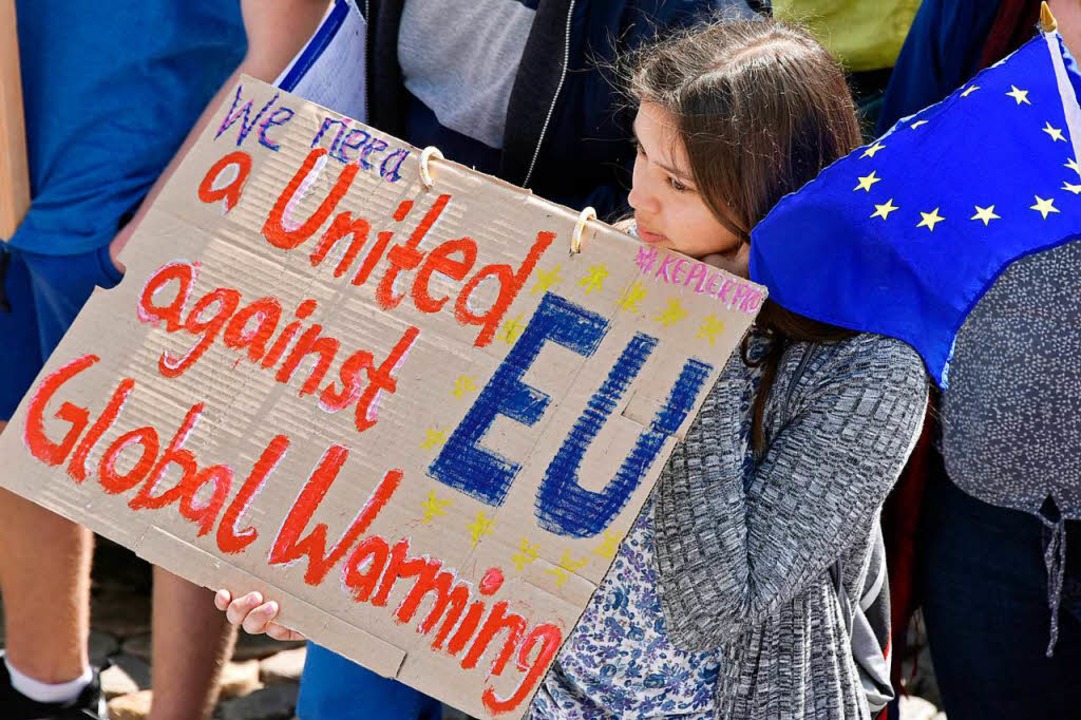 We need
a United
EU
against
Global
Warming